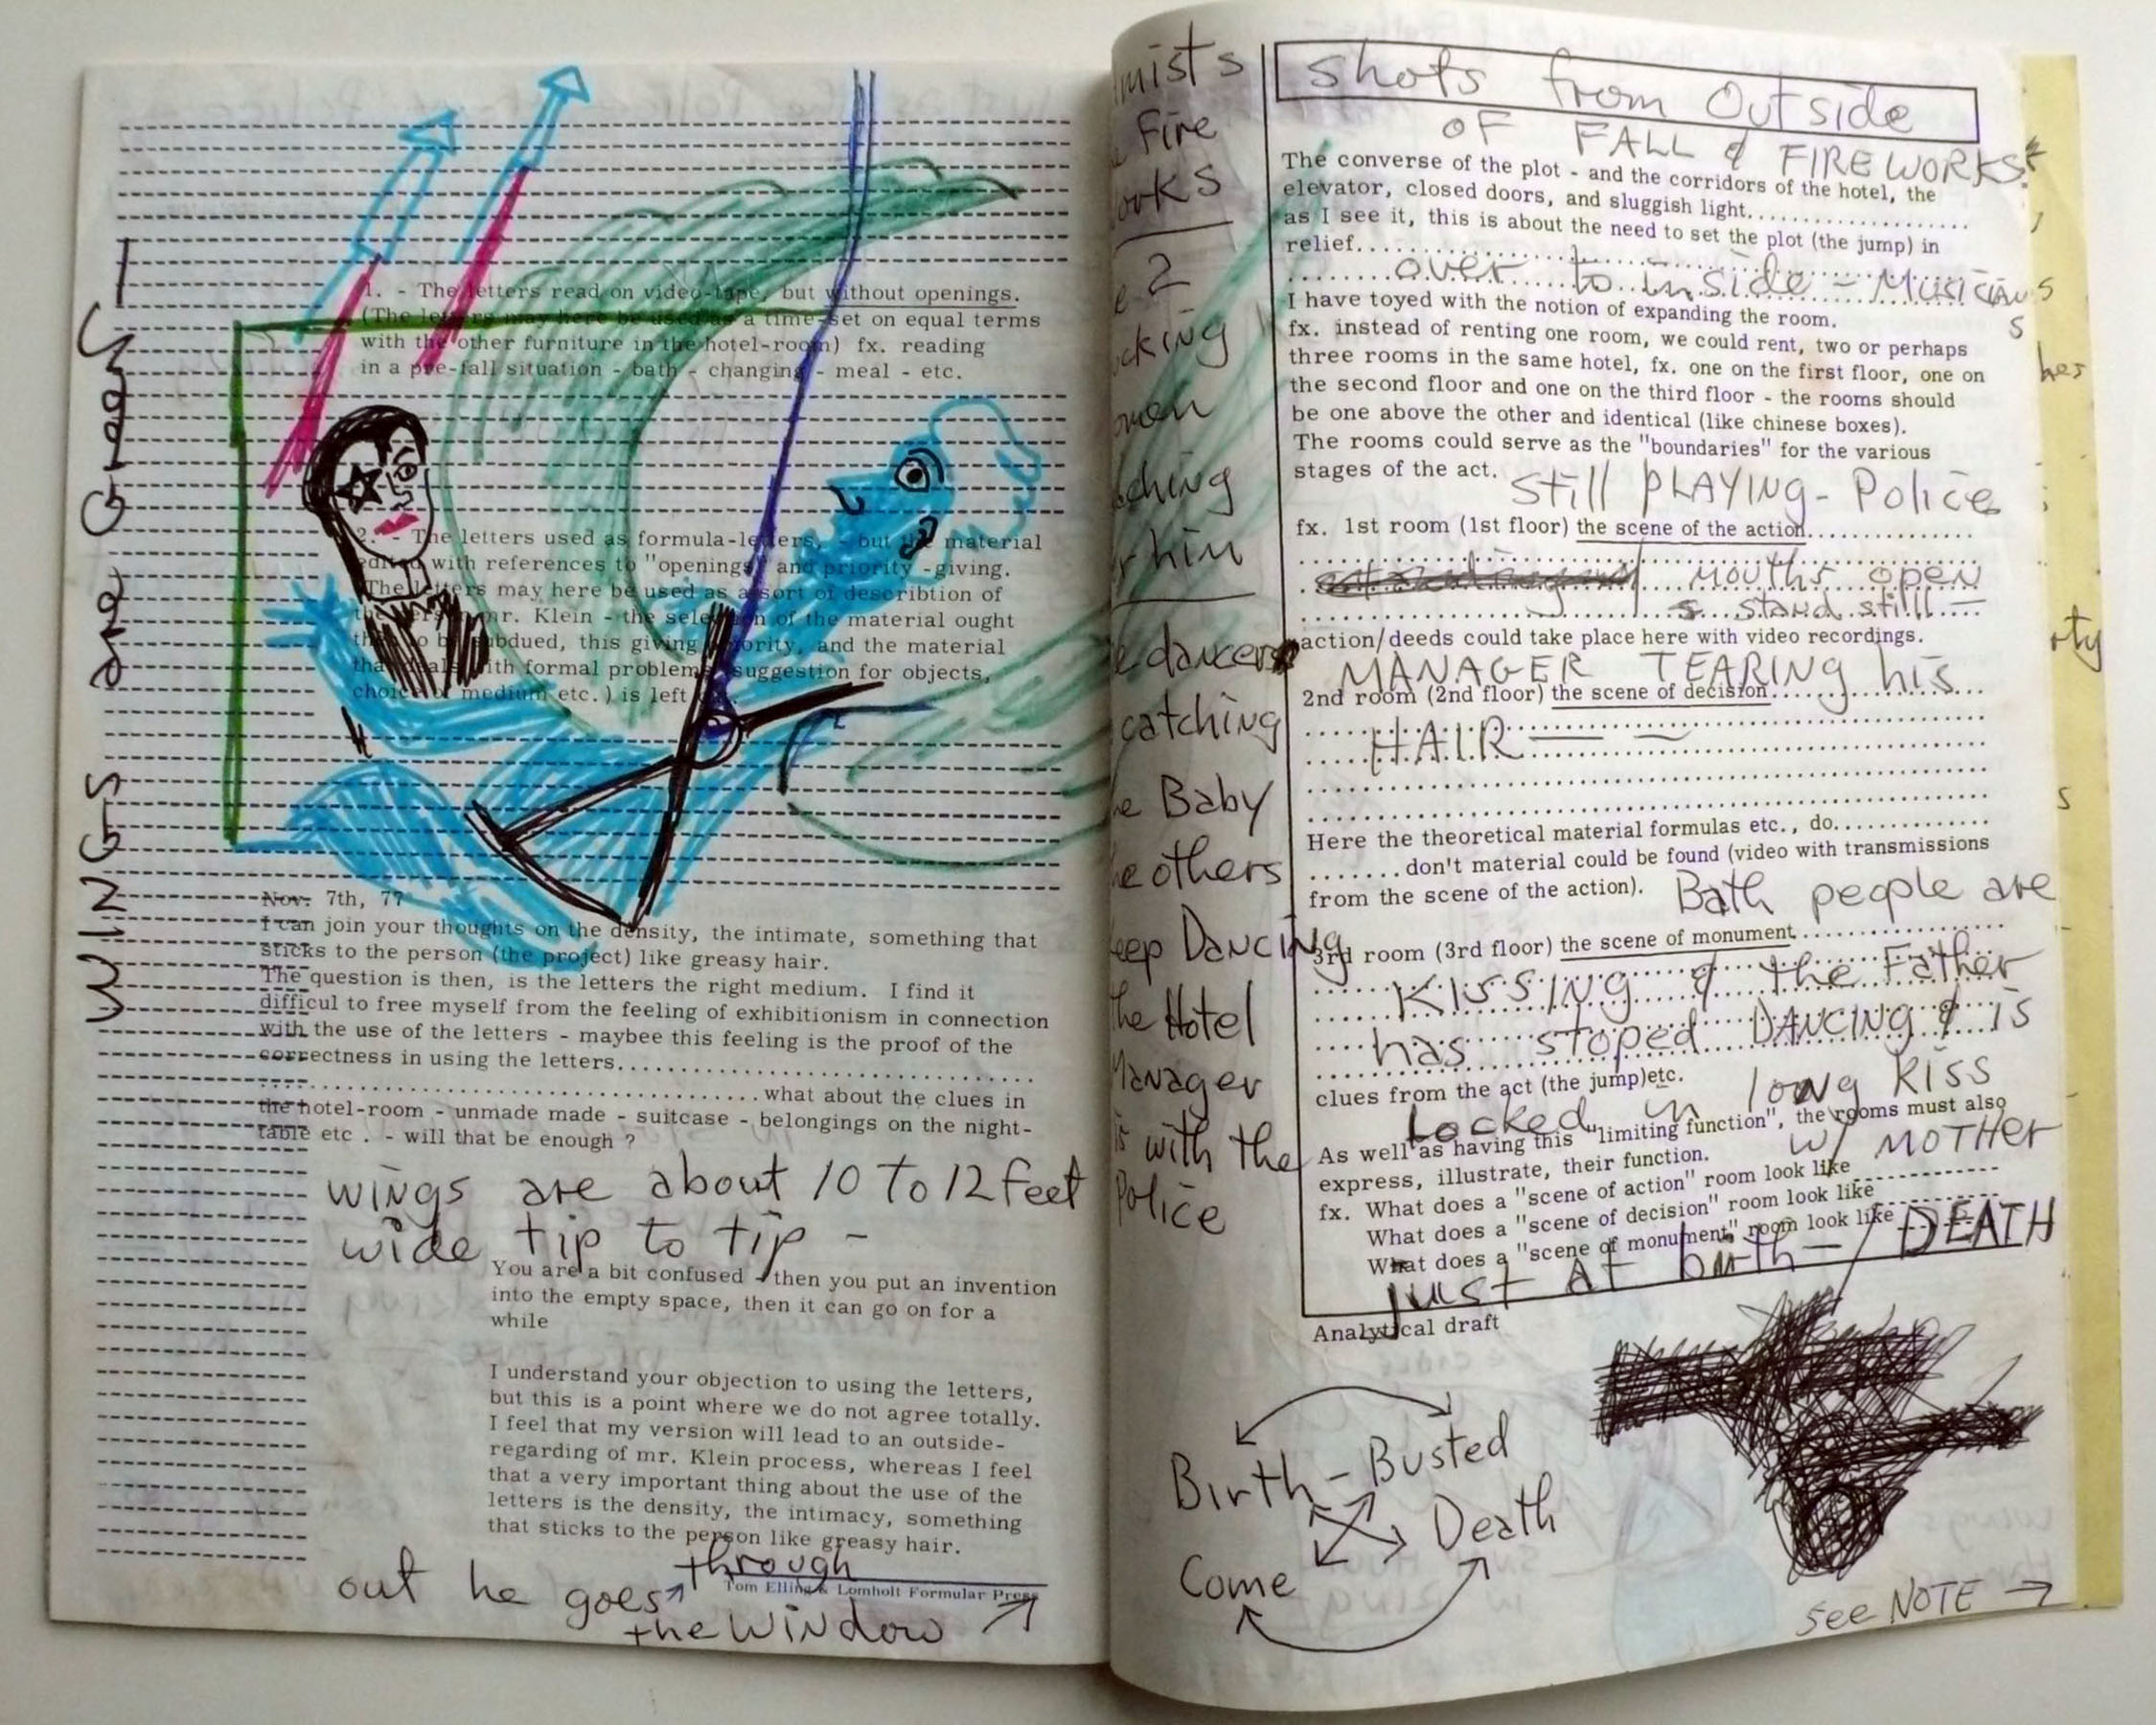 WINGS are Green!
1. - The letters read on video-tape, but without openings.
(The letters may here be used as a time-set on equal terms
with the other furniture in the hotel-room) fx. reading
in a pre-fall situation - bath - changing - meal - etc.
2. - The letters used as formula-letters, - but the material
edited with references to "openings" and priority -giving.
The letters may here be used as a sort of describtion of
mr. Klein - the selection of the material ought
to be subdued, this giving priority, and the material
that deals with formal problems suggestion for objects,
choice of medium etc. ) is left
Nov. 7th, 77
I can join your thoughts on the density, the intimate, something that
sticks to the person (the project) like greasy hair.
The question is then, is the letters the right medium. I find it
difficul to free myself from the feeling of exhibitionism in connection
with the use of the letters - maybee this feeling is the proof of the
correctness in using the letters..............................
what about the clues in
the hotel-room - unmade made - suitcase - belongings on the night-
table etc . - will that be enough ?
wings are about 10 To 12 feet
wide tip to tip -
You are a bit confused - then you put an invention
into the empty space, then it can go on for a
while
I understand your objection to using the letters,
but this is a point where we do not agree totally.
I feel that my version will lead to an outside-
regarding of mr. Klein process, whereas I feel
that a very important thing about the use of the
letters is the density, the intimacy, something
that sticks to the person like greasy hair.
out he goes through
the Window
Tom Elling & Lomholt Formular Press
Fire
2
dancers
catching
Baby
others
Dancing
the Hotel
Manager
is with the
Police
shots from Outside
OF FALL & FIREWORKS
The converse of the plot - and the corridors of the hotel, the
elevator, closed doors, and sluggish light......................
as I see it, this is about the need to set the plot (the jump) in
relief..............................
over to inside - Musicians
I have toyed with the notion of expanding the room.
fx. instead of renting one room, we could rent, two or perhaps
three rooms in the same hotel, fx. one on the first floor, one on
the second floor and one on the third floor - the rooms should
be one above the other and identical (like chinese boxes).
The rooms could serve as the "boundaries" for the various
stages of the act.
still PLAYING - Police
fx. 1st room (1st floor) the scene of the action...............
mouths open
s stand still -
action/deeds could take place here with video recordings.
MANAGER TEARING his
2nd room (2nd floor) the scene of decision...................
HAIR
Here the theoretical material formulas etc., do..............
.......don't material could be found (video with transmissions
from the scene of the action).
Bath people are
3rd room (3rd floor) the scene of monument..................
KISSING & the Father
has stoped DANCING & is
clues from the act (the jump)etc.
Locked in long KISS
As well as having this "limiting function", the rooms must also
w/ MOTHER
express, illustrate, their function.
fx. What does a "scene of action" room look like
What does a "scene of decision" room look like
What does a "scene of monument" room look like
just at birth - / DEATH
Analytical draft
Birth - Busted
Death
Come
see NOTE →